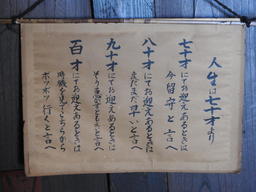 人生は七十才より
七十才にてお迎えあるときは
今留守と言へ
八十才にてお迎えあるときは
まだまだ早いと言へ
九十才にてお迎えあるときは
そう急がずともよいと言へ
百才にてお迎えあるときは
時機を見てこちらから
ボツボツ行くと言へ